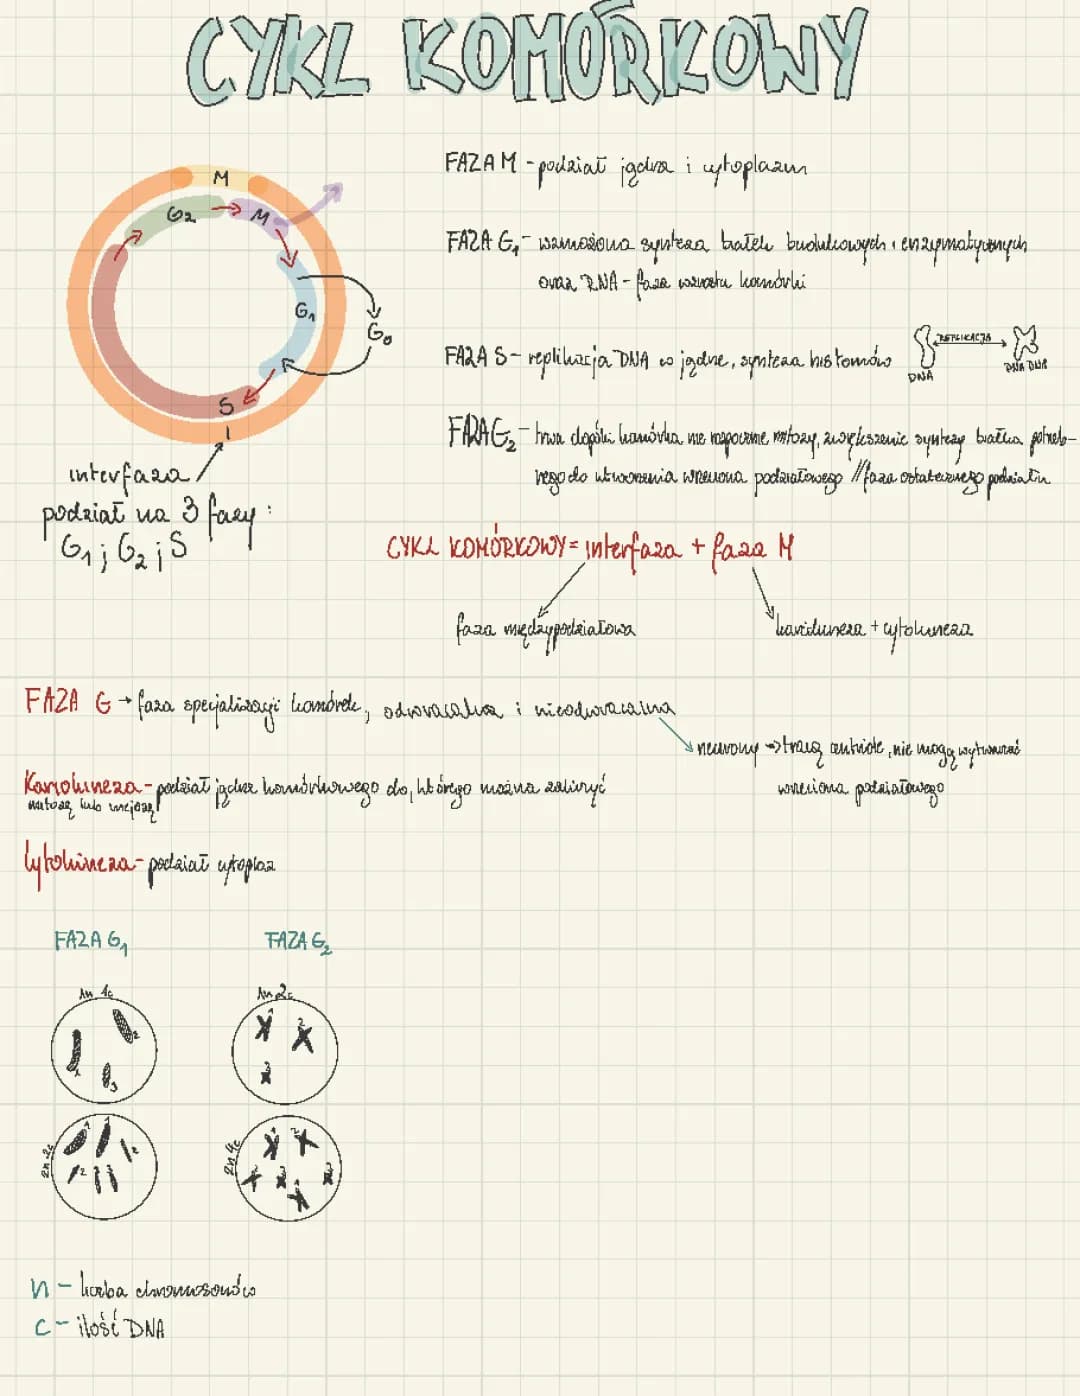 CYKL KOMÓRKOWY
M
G2
M
G1
G0
S
I
interfaza
podział na 3 fazy:
G1; G2; S
FAZA M - podział jądra i cytoplazm
FAZA G1 - wzmożona synteza białek budulkowych i enzymatycznych
oraz RNA - faza wzrostu komórki
FAZA S - replikacja DNA w jądrze, synteza histonów
REPLIKACJA
DNA
DNA DNA
FAZA G2 - trwa dopóki komórka nie rozpocznie mitozy, zwiększenie syntezy białka potrzeb-
nego do utworzenia wrzeciona podziałowego // faza ostatecznego podziału
CYKL KOMÓRKOWY = interfaza + faza M
faza międzypodziałowa
kariokineza + cytokineza
FAZA G → faza specjalizacji komórek, odwracalna i nieodwracalna
neurony → tracą centriole, nie mogą wytwarzać
wrzeciona podziałowego
Kariokineza - podział jądra komórkowego do, którego można zaliczyć
mitozę lub mejozę
Cytokineza - podział cytoplaz
FAZA G1
FAZA G2
1n 1c
1 2 3
1n 2c
1 2 3
2n 2c
1 1 2 2 3 3
2n 4c
n - liczba chromosomów
c - ilość DNA